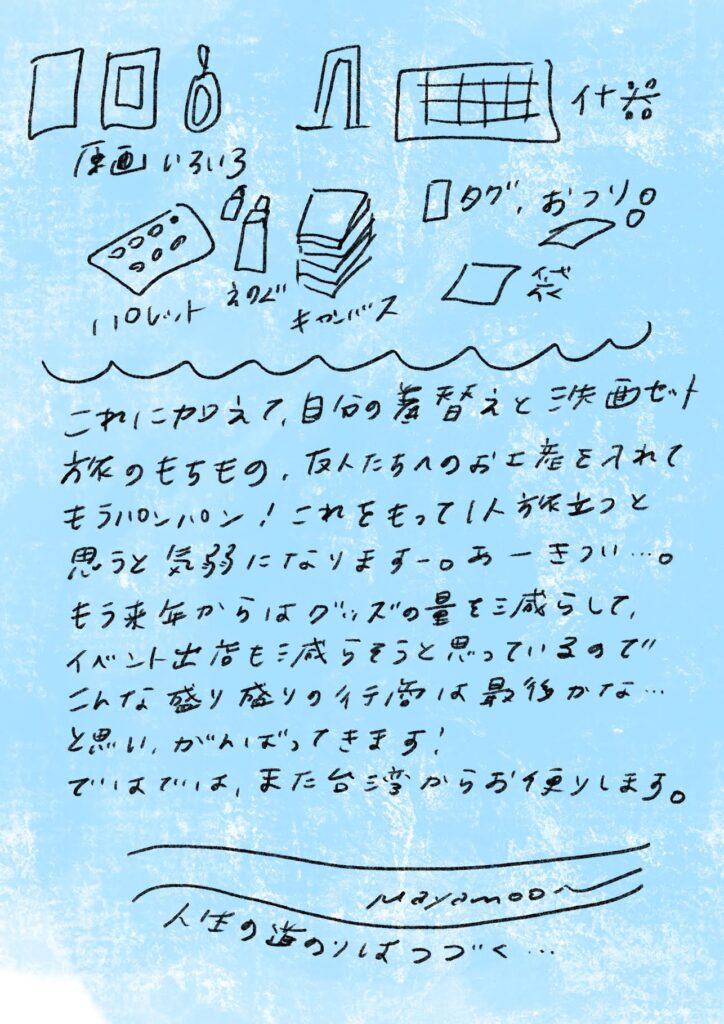 原画いろいろ
什器
タグ、おつり
パレット
えのぐ
キャンバス
袋
これに加えて、自分の着替えと洋画セット
旅のもちもの、友人たちへのお土産を入れて
もうパンパン!これをもって1人旅立つと
思うと気弱になりますー。あーきつい…。
もう来年からはグッズの量を減らして、
イベント出店も減らそうと思っているので
こんな盛り盛りの行商は最後かな…
と思い、がんばってきます!
ではでは、また台湾からお便りします。
Mayamoon
人生の道のりはつづく…